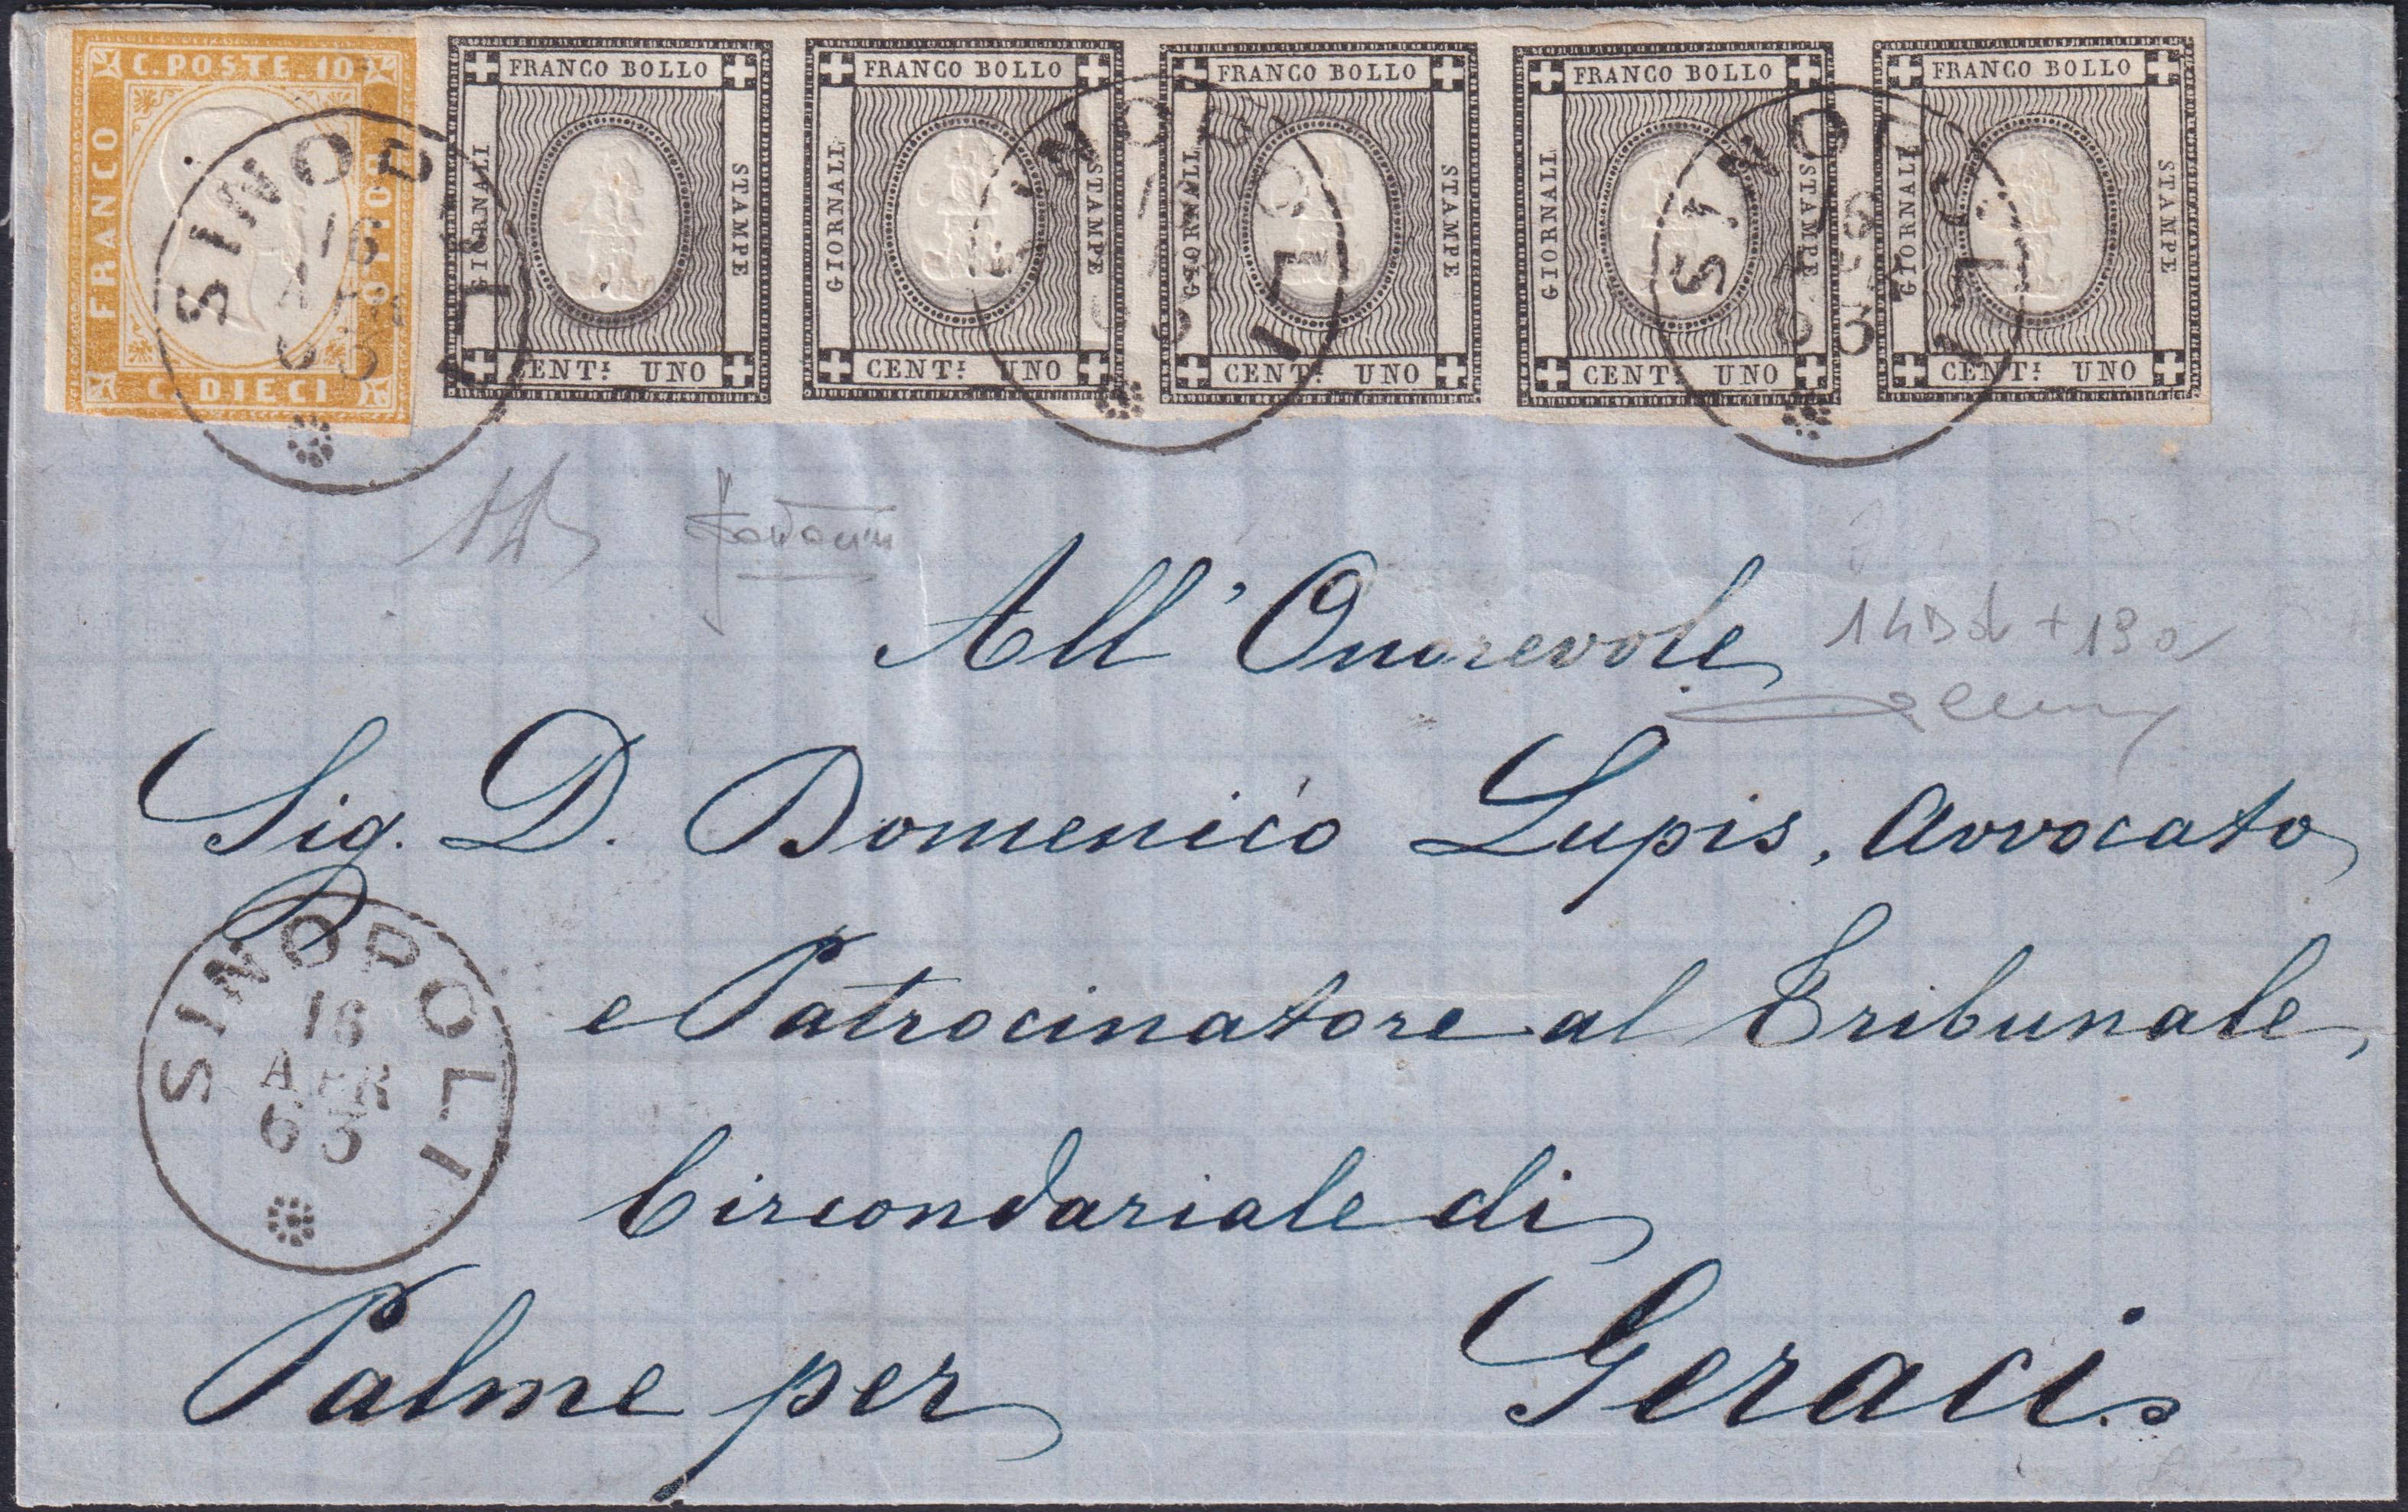 C. POSTE. 10
FRANCO
BOLLO
C. DIECI
FRANCO BOLLO
GIORNALI
STAMPE
CENT: UNO
FRANCO BOLLO
GIORNALI
STAMPE
CENT: UNO
FRANCO BOLLO
GIORNALI
STAMPE
CENT: UNO
FRANCO BOLLO
GIORNALI
STAMPE
CENT: UNO
FRANCO BOLLO
GIORNALI
STAMPE
CENT: UNO
SINOPOLI
16
APR
63
SINOPOLI
SINOPOLI
63
All' Onorevole
Sig. D. Domenico Lupis, Avvocato
e Patrocinatore al Tribunale,
Circondariale di
Palme per Geraci.
SINOPOLI
16
APR
63